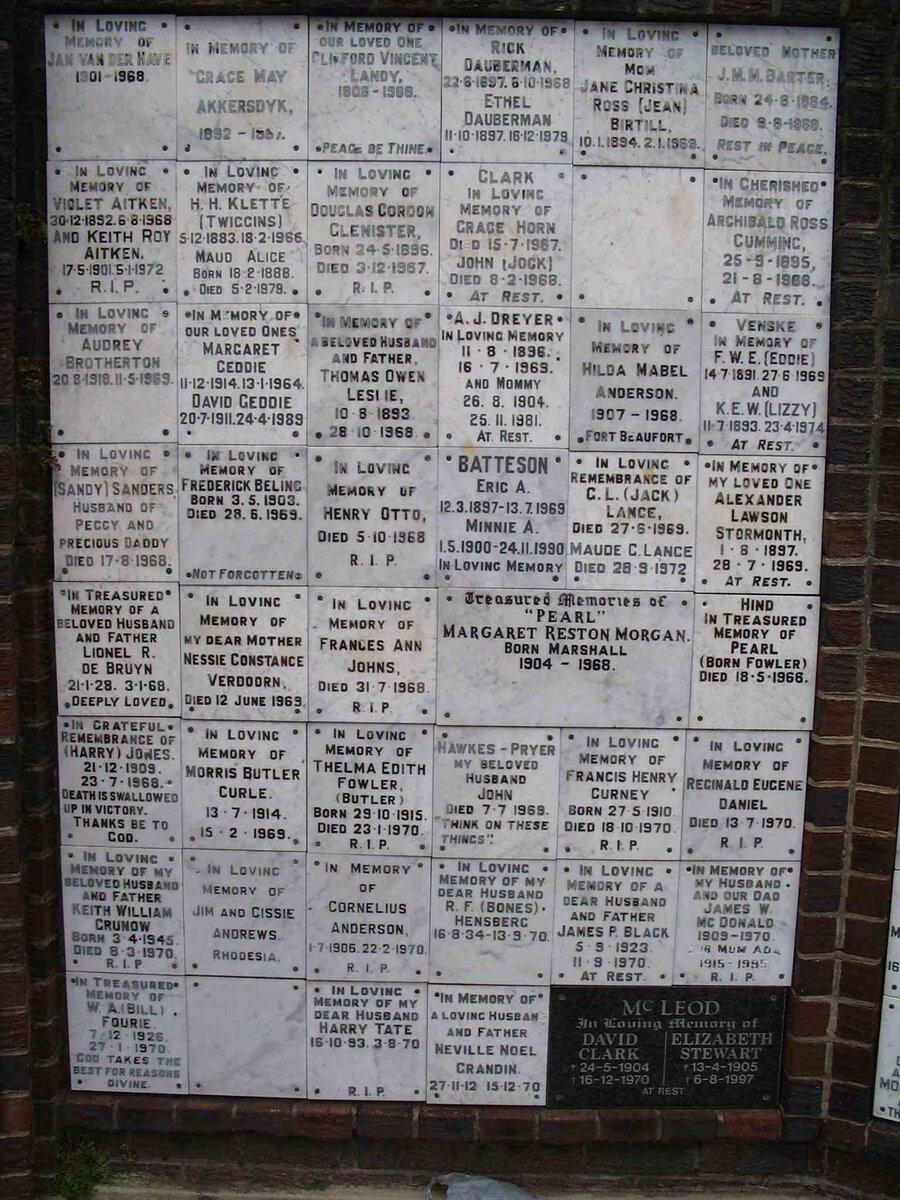 In Loving
Memory of
Jan van der Have
1901-1968.
In Memory of
Grace May
Akkersdyk,
1892 -
In Memory of
our loved one
Clifford Vincent
Landy,
Peace be Thine.
In Memory of
Rick
Dauberman,
22·6·1897. 6·10·1968
Ethel
Dauberman
11·10·1897. 16·12·1979
In Loving
Memory of
Mom
Jane Christina
Ross (Jean)
Birtill,
10.1.1894. 2.1.1969.
Beloved Mother
J.M.M. Barter.
Born 24-8-1884.
Died 9-8-1968.
Rest in Peace.
In Loving
Memory of
Violet Aitken,
30·12·1892. 6·8·1968
and Keith Roy
Aitken,
17·5·1901. 5·1·1972
R.I.P.
In Loving
Memory of
H.H. Klette
(Twiggins)
5·12·1883. 18·2·1966.
Maud Alice
Born 18·2·1888.
Died 5·2·1979.
In Loving
Memory of
Douglas Gordon
Glenister,
Born 24-5-1896.
Died 3-12-1967.
R.I.P.
Clark
In Loving
Memory of
Grace Horn
Died 15·7·1967.
John (Jock)
Died 8·2·1968.
At Rest.
In Cherished
Memory of
Archibald Ross
Cumming,
25-9-1895,
21-8-1968.
At Rest.
In Loving
Memory of
Audrey
Brotherton
20·8·1918. 11·5·1969.
In Memory of
our loved ones
Margaret
Geddie
11·12·1914. 13·1·1964.
David Geddie
20·7·1911. 24·4·1989
In Memory of
a beloved Husband
and Father,
Thomas Owen
Leslie,
10·8·1893
28·10·1968.
A. J. Dreyer
In Loving Memory
11·8·1896.
16·7·1969.
and Mommy
26.8.1904.
25.11.1981.
At Rest.
In Loving
Memory of
Hilda Mabel
Anderson.
1907 - 1968.
Fort Beaufort.
Venske
In Memory of
F.W.E. (Eddie)
14·7·1891. 27·6·1969
and
K.E.W. (Lizzy)
11·7·1893. 23·4·1974
At Rest.
In Loving
Memory of
(Sandy) Sanders
Husband of
Peggy and
Precious Daddy
Died 17·8·1968.
In Loving
Memory of
Frederick Beling
Born 3.5.1903.
Died 28.6.1969.
Not Forgotten
In Loving
Memory of
Henry Otto,
Died 5·10·1968
R.I.P.
Batteson
Eric A.
12.3.1897-13.7.1969
Minnie A.
1.5.1900-24.11.1990
In Loving Memory
In Loving
Remembrance of
C.L. (Jack)
Lance,
Died 27·6·1969.
Maude C. Lance
Died 28·9·1972
In Memory of
my loved one
Alexander
Lawson
Stormonth,
1·8·1897.
28·7·1969.
At Rest.
In Treasured
Memory of a
beloved Husband
and Father
Lionel R.
de Bruyn
21·1·28. 3·1·68.
Deeply Loved.
In Loving
Memory of
my dear Mother
Nessie Constance
Verdoorn,
Died 12 June 1969.
In Loving
Memory of
Frances Ann
Johns,
Died 31·7·1968.
R.I.P.
Treasured Memories of
"Pearl"
Margaret Reston Morgan.
Born Marshall
1904 - 1968.
Hind
In Treasured
Memory of
Pearl
(Born Fowler)
Died 18·5·1966.
In Grateful
Remembrance of
(Harry) Jones.
21·12·1909.
23·7·1968.
Death is swallowed
up in victory.
Thanks be to
God.
In Loving
Memory of
Morris Butler
Curle.
13·7·1914.
15·2·1969.
In Loving
Memory of
Thelma Edith
Fowler,
(Butler)
Born 29·10·1915.
Died 23·1·1970.
R.I.P.
Hawkes-Pryer
my beloved
Husband
John
Died 7·7·1969.
"Think on these
things".
In Loving
Memory of
Francis Henry
Gurney
Born 27·5·1910.
Died 18·10·1970.
R.I.P.
In Loving
Memory of
Reginald Eugene
Daniel
Died 13·7·1970.
R.I.P.
In Loving
Memory of my
beloved Husband
and Father
Keith William
Grunow
Born 3·4·1945.
Died 8·3·1970.
R.I.P
In Loving
Memory of
Jim and Cissie
Andrews.
Rhodesia.
In Memory
of
Cornelius
Anderson,
1·7·1906. 22·2·1970.
R.I.P.
In Loving
Memory of my
dear Husband
R.F. (Bones)
Hensberg
16·8·34-13·9·70.
In Loving
Memory of a
dear Husband
and Father
James P. Black
5·9·1923.
11·9·1970.
At Rest.
In Memory of
my Husband
and our Dad
James W.
McDonald
1909-1970.
Mum Ada
1915-1995
R.I.P.
In Treasured
Memory of
W.A. (Bill)
Fourie.
7·12·1926.
27·1·1970.
God takes the
best for reasons
Divine.
In Loving
Memory of my
dear Husband
Harry Tate
16·10·93. 3·8·70
R.I.P.
In Memory of
a loving Husban
and Father
Neville Noel
Grandin.
27·11·12 15·12·70
McLeod
In Loving Memory of
David
Clark
†24-5-1904
†16-12-1970
Elizabeth
Stewart
†13-4-1905
†6-8-1997
At Rest